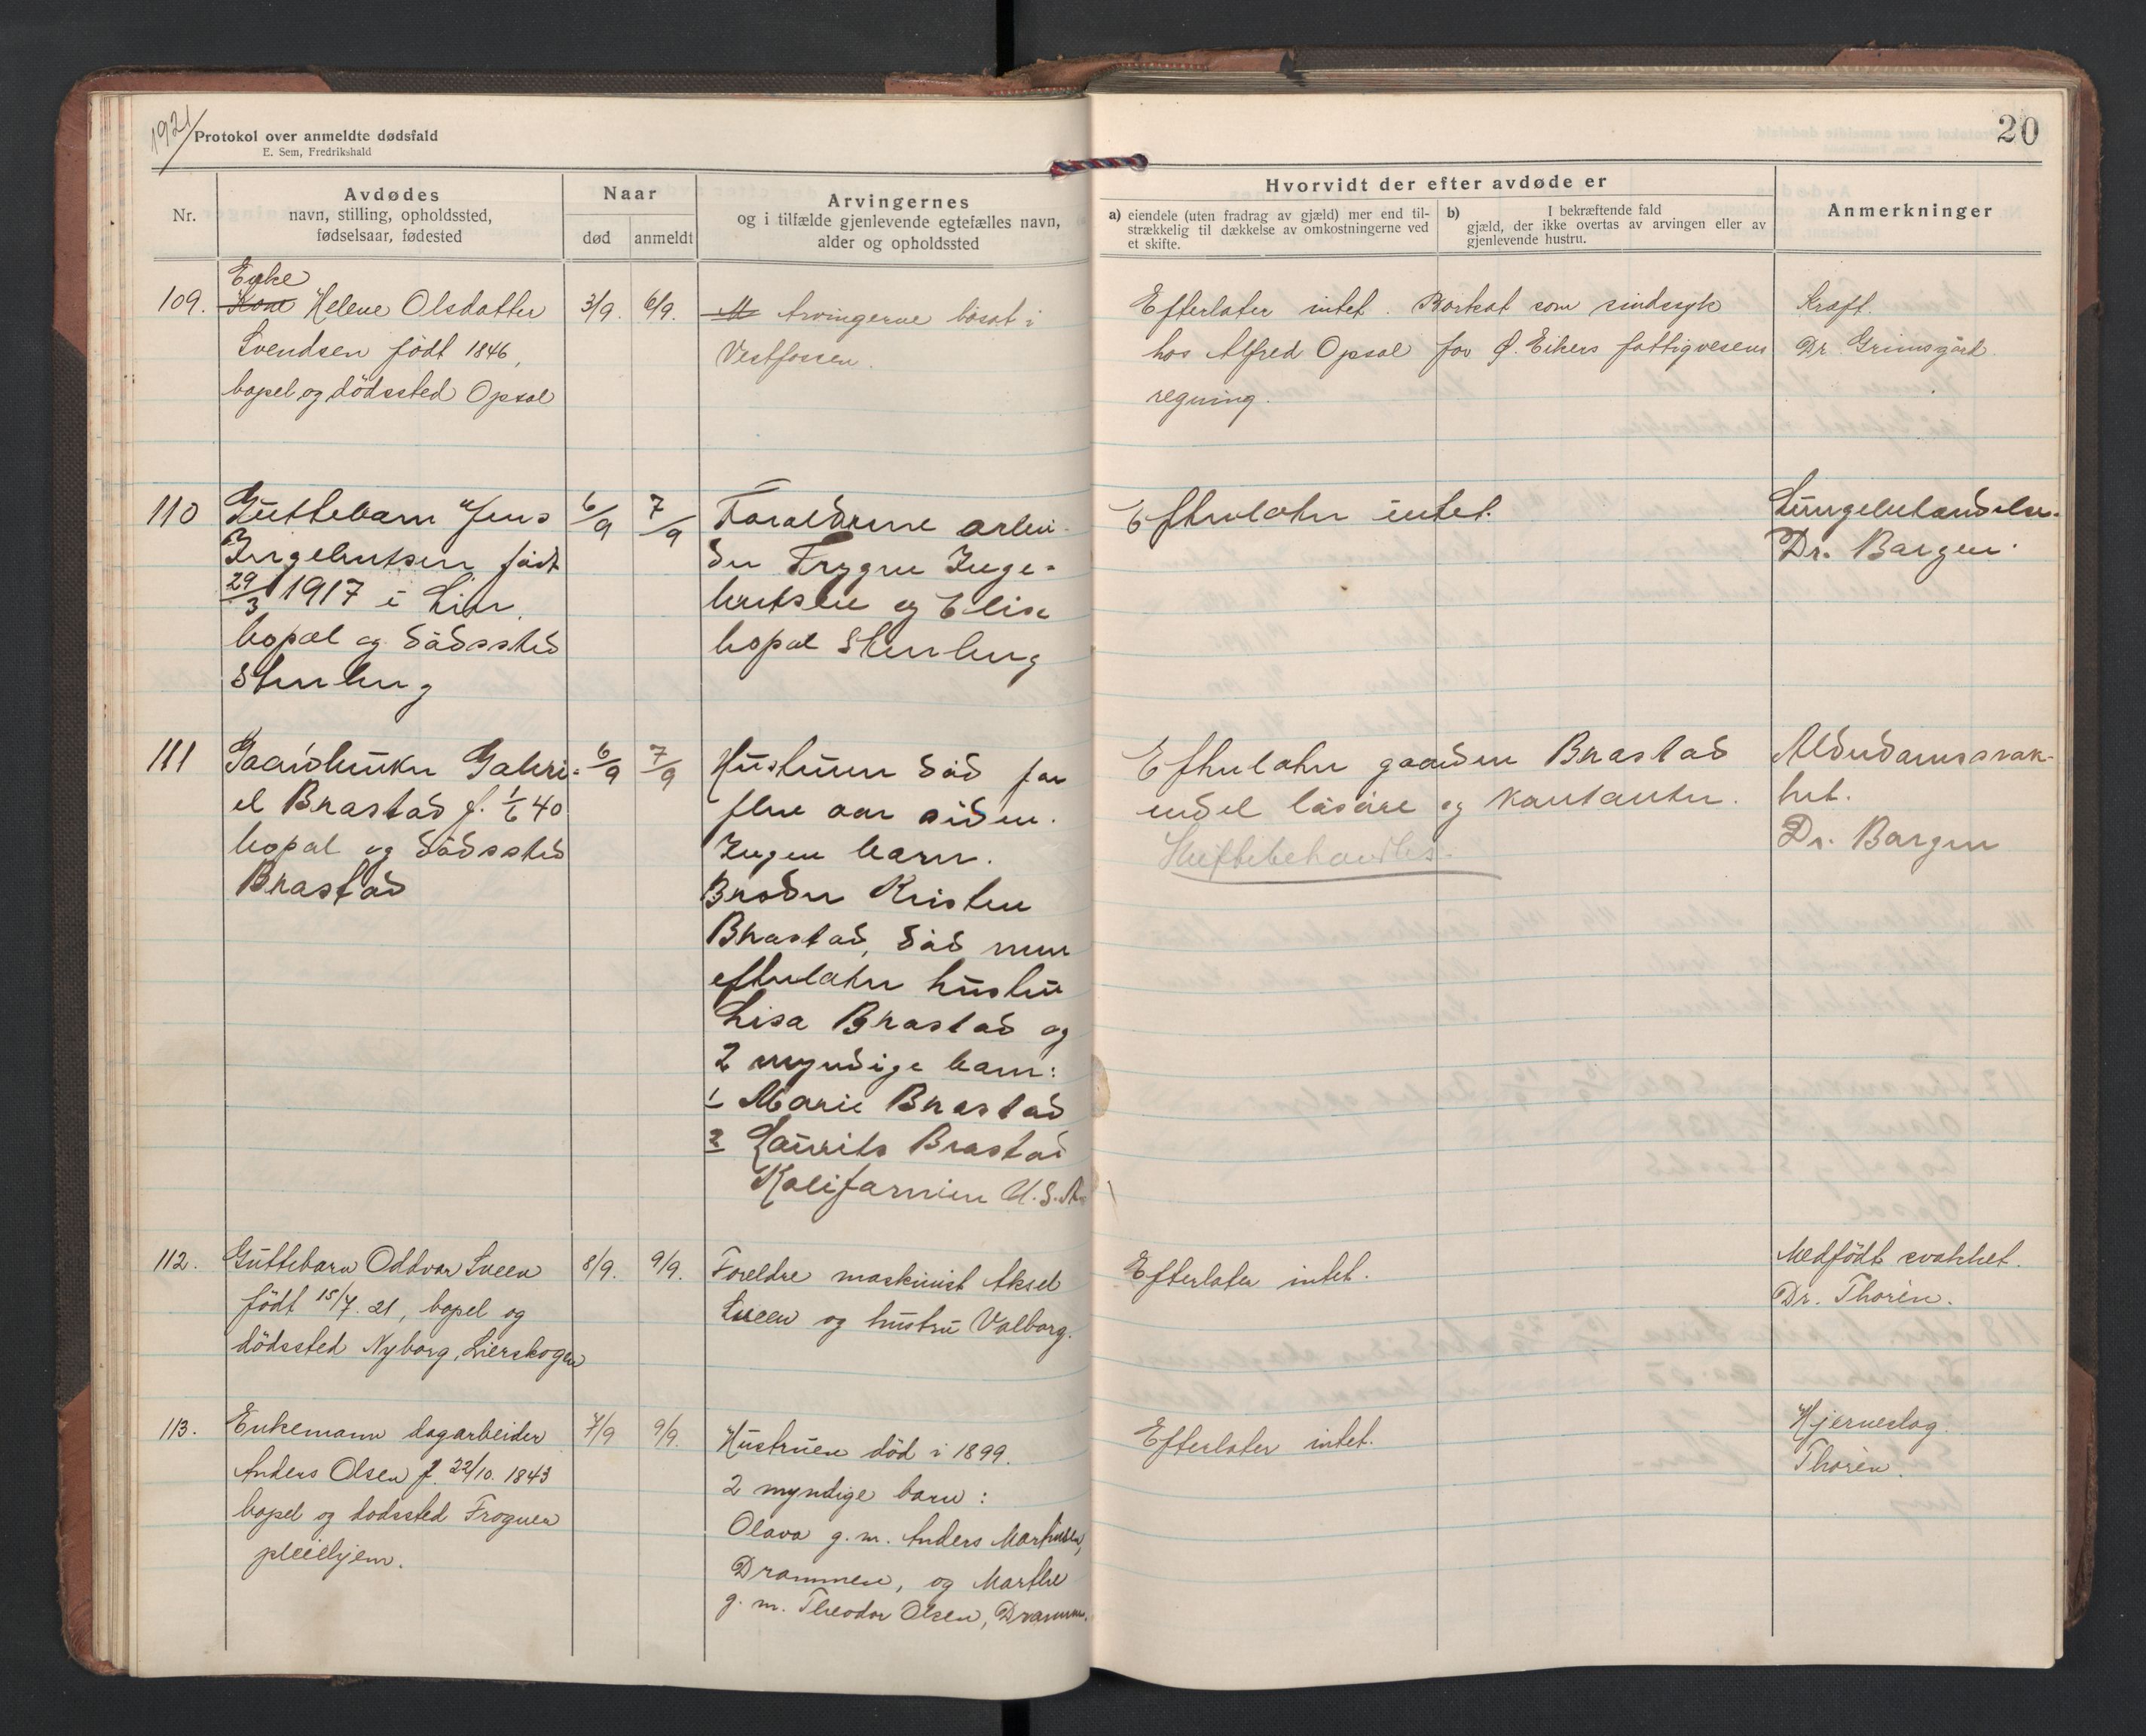 1921
Protokol over anmeldte dødsfald
E. Sem, Fredrikshald
20
Nr.
Avdødes
navn, stilling, opholdssted,
fødselsaar, fødested
Naar
død
anmeldt
Arvingernes
og i tilfælde gjenlevende egtefælles navn,
alder og opholdssted
Hvorvidt der efter avdøde er
a) eiendele (uten fradrag av gjæld) mer end til-
strækkelig til dækkelse av omkostningerne ved
et skifte.
b) I bekræftende fald
gjæld, der ikke overtas av arvingen eller av
gjenlevende hustru.
Anmerkninger
109.
Enke
Kone Helene Olsdatter
Svendsen født 1846,
bopel og dødssted Opsal
3/9.
6/9.
M Arvingerne bosat i
Vestfossen.
Efterlater intet. Bortsat som sindssyk
hos Alfred Opsal for Ø. Eikers fattigvesens
regning.
Kræft.
Dr. Grimsgård.
110
Guttebarn Jens
Ingebretsen født
29/3 1917 i Lier.
bopæl og dødssted
Stenberg
6/9
7/9
Forældrene arbei-
der Trygve Inge-
bertsen og Elise
bopæl Stenberg
Efterlater intet.
Lungebetændelse.
Dr. Bargen.
111
Gaardbruker Gabri-
el Brastad f. 1/6 40
bopæl og dødssted
Brastad
6/9
7/9
Hustruen død for
flere aar siden.
Ingen barn.
Broder Kristen
Brastad, død men
efterlater hustru
Lisa Brastad og
2 myndige barn:
1 Marie Brastad
2 Laurits Brastad
Kalifornien U.S.A.
Efterlater gaarden Brastad
endel løsøre og kontanter.
Skiftebehandles.
Alderdomssvak-
het.
Dr. Bargen
112.
Guttebarn Oddvar Sveen
født 15/7. 21, bopel og
dödssted Nyborg, Lierskogen
8/9.
9/9.
Foreldre maskinist Aksel
Sveen og hustru Valborg.
Efterlater intet.
Medfödt svakhet.
Dr. Thorén.
113.
Enkemann dagarbeider
Anders Olsen f. 22/10. 1843
bopel og dodssted Frogner
pleiehjem.
7/9
9/9.
Hustruen död i 1899.
2 myndige barn:
Olava g. m. Anders Martinsen,
Drammen, og Marthe
g. m. Theodor Olsen, Drammen.
Efterlater intet.
Hjerneslag.
Thorén.